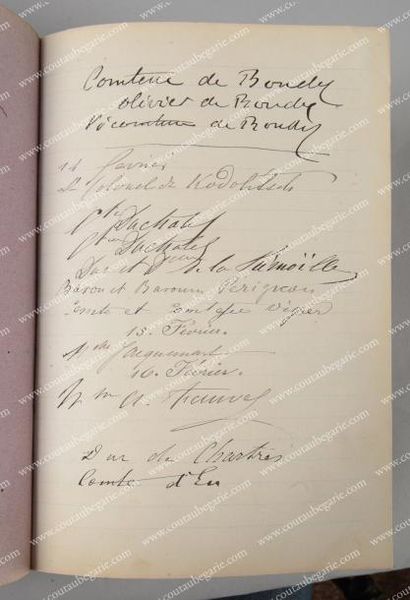 Comtesse de Bondy
Olivier de Bondy
Vicomtesse de Bondy
14 Février
Lt Colonel de Kodolitsch
Duchatel
Duchatel
Duc et de la Trémoïlle
Baron et Baronne Pérignon
Comte et Comtesse Vigier
15 Février.
Jacquemart
16 Février.
Duc de Chartres
Comte d'Eu
www.coutaubegarie.com